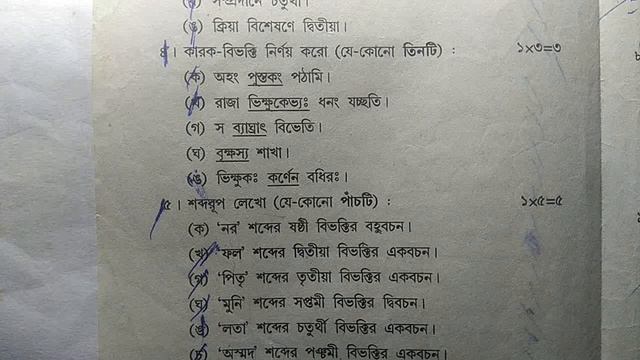 (ঘ) সম্প্রদানে চতুর্থী।
(ঙ) ক্রিয়া বিশেষণে দ্বিতীয়া।
৪। কারক-বিভক্তি নির্ণয় করো (যে-কোনো তিনটি) : ১×৩=৩
(ক) অহং পুস্তকং পঠামি।
(খ) রাজা ভিক্ষুকেভ্যঃ ধনং যচ্ছতি।
(গ) স ব্যাঘ্রাৎ বিভেতি।
(ঘ) বৃক্ষস্য শাখা।
(ঙ) ভিক্ষুকঃ কর্ণেন বধিরঃ।
৫। শব্দরূপ লেখো (যে-কোনো পাঁচটি) : ১×৫=৫
(ক) 'নর' শব্দের ষষ্ঠী বিভক্তির বহুবচন।
(খ) 'ফল' শব্দের দ্বিতীয়া বিভক্তির একবচন।
(গ) 'পিতৃ' শব্দের তৃতীয়া বিভক্তির একবচন।
(ঘ) 'মুনি' শব্দের সপ্তমী বিভক্তির দ্বিবচন।
(ঙ) 'লতা' শব্দের চতুর্থী বিভক্তির একবচন।
(চ) 'অস্মদ' শব্দের পঞ্চমী বিভক্তির একবচন।